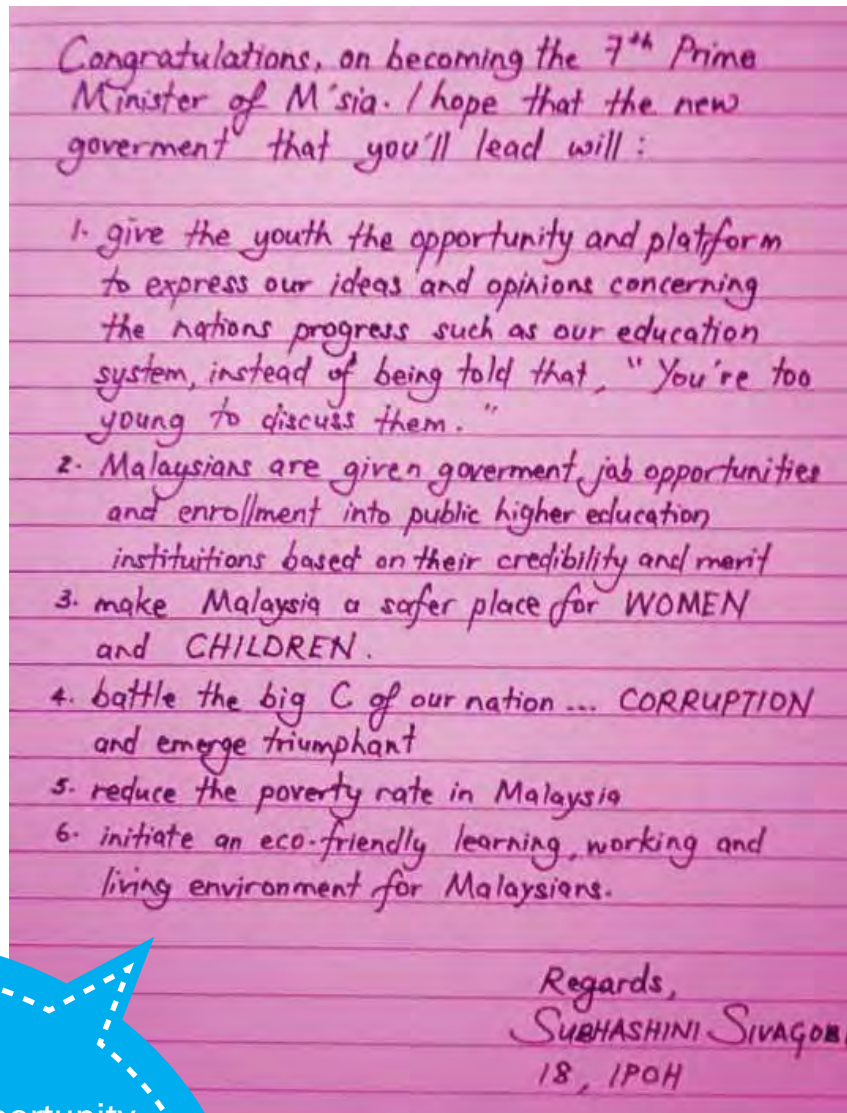 Congratulations, on becoming the 7th Prime
Minister of M'sia. I hope that the new
goverment that you'll lead will :
1. give the youth the opportunity and platform
to express our ideas and opinions concerning
the nations progress such as our education
system, instead of being told that, "You're too
young to discuss them."
2. Malaysians are given goverment job opportunities
and enrollment into public higher education
instituitions based on their credibility and merit
3. make Malaysia a safer place for WOMEN
and CHILDREN.
4. battle the big C of our nation ... CORRUPTION
and emerge triumphant
5. reduce the poverty rate in Malaysia
6. initiate an eco-friendly learning, working and
living environment for Malaysians.
Regards,
SUBHASHINI
18, IPOH